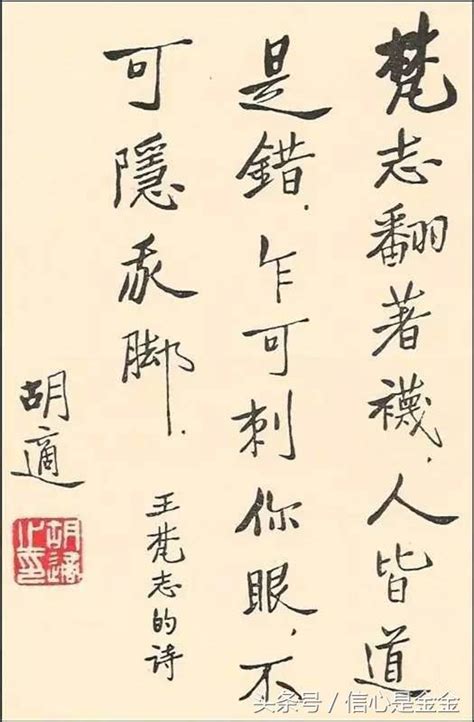 梵志翻著襪，人皆道
是錯．乍可刺你眼，不
可隱我脚．
王梵志的詩
胡適
胡適
之印
头条号 / 信心是金金